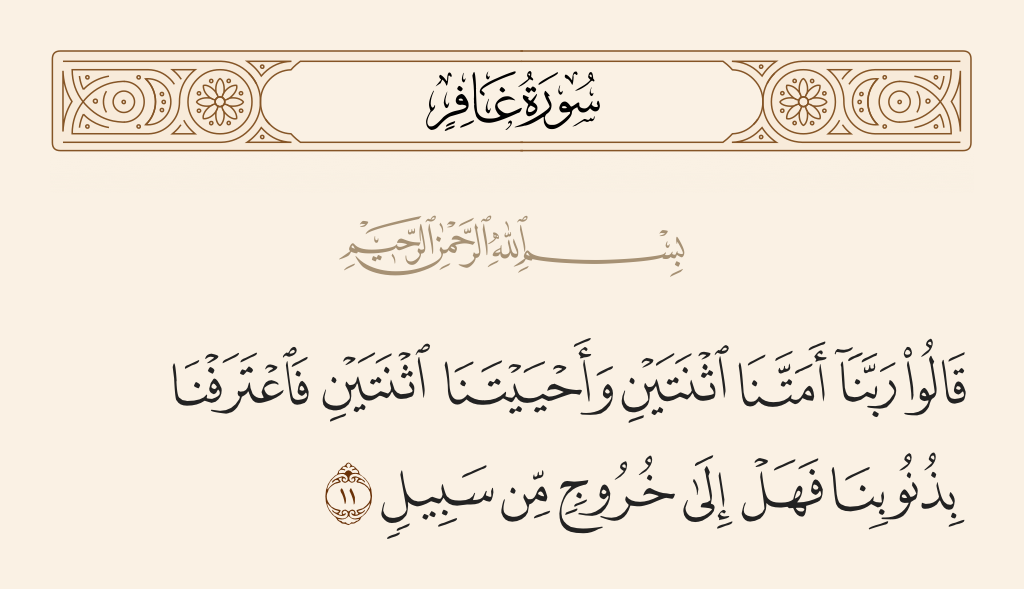 سُورَةُ غَافِرٍ
بِسْمِ ٱللَّهِ ٱلرَّحْمَٰنِ ٱلرَّحِيمِ
قَالُوا۟ رَبَّنَآ أَمَتَّنَا ٱثْنَتَيْنِ وَأَحْيَيْتَنَا ٱثْنَتَيْنِ فَٱعْتَرَفْنَا
بِذُنُوبِنَا فَهَلْ إِلَىٰ خُرُوجٍ مِّن سَبِيلٍ ١١